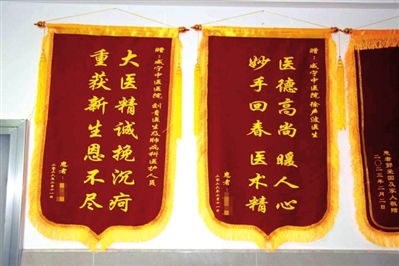 赠：咸宁中医医院
医生及肺病科医护人员
大医精诚挽沉疴
重获新生恩不尽
患者：
赠：咸宁中医医院 徐声波医生
医德高尚暖人心
妙手回春医术精
患者：
患者 及家人敬赠
二〇二三年二月二日